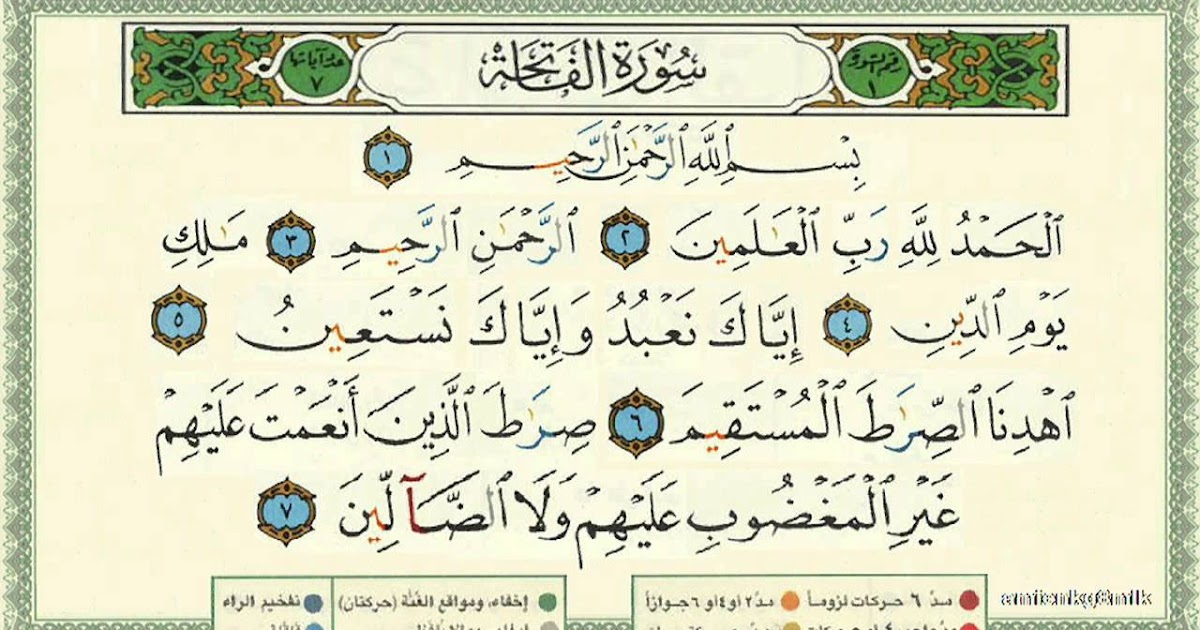 رقمها ١ سُورَةُ الفَاتِحَةِ عدد آياتها ٧
بِسْمِ ٱللَّهِ ٱلرَّحْمَٰنِ ٱلرَّحِيمِ ١
ٱلْحَمْدُ لِلَّهِ رَبِّ ٱلْعَٰلَمِينَ ٢ ٱلرَّحْمَٰنِ ٱلرَّحِيمِ ٣ مَٰلِكِ
يَوْمِ ٱلدِّينِ ٤ إِيَّاكَ نَعْبُدُ وَإِيَّاكَ نَسْتَعِينُ ٥
ٱهْدِنَا ٱلصِّرَٰطَ ٱلْمُسْتَقِيمَ ٦ صِرَٰطَ ٱلَّذِينَ أَنْعَمْتَ عَلَيْهِمْ
غَيْرِ ٱلْمَغْضُوبِ عَلَيْهِمْ وَلَا ٱلضَّآلِّينَ ٧
مدّ ٦ حركات لزوماً مدّ ٢ أو ٤ أو ٦ جوازاً
إخفاء، ومواقع الغُنَّة (حركتان) تفخيم الراء